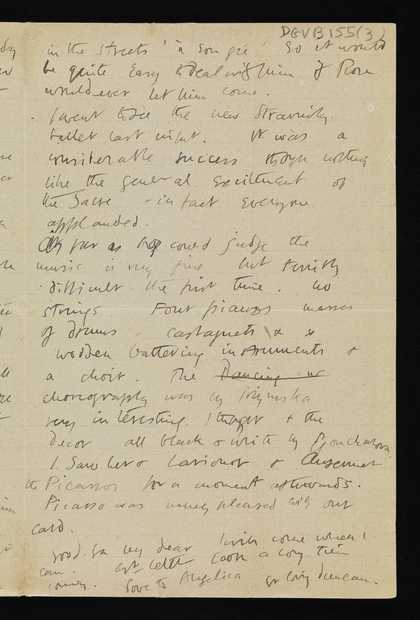 DGVB 155(3)
in the streets 'à son gré' So it would
be quite easy to deal with him if Rose
would ever let him come.
I went to see the new Stravinsky
ballet last night. It was a
considerable success though nothing
like the general excitement of
the Sacre - in fact everyone
applauded.
As far as I could judge the
music is very fine but terribly
difficult the first time. No
strings Four pianos masses
of drums castagnets & a
wooden battering instruments &
a choir. The Dancing
choreography was by Nijinska
very interesting. I thought & the
Decor all black & white by Gontcharova.
I saw Larionov & Ansermet
the Picassos for a moment afterwards.
Picasso was very pleased with our
card.
Good bye my dear I will come when I
can. Cook a cosy
Love to Angelica yr loving Duncan.